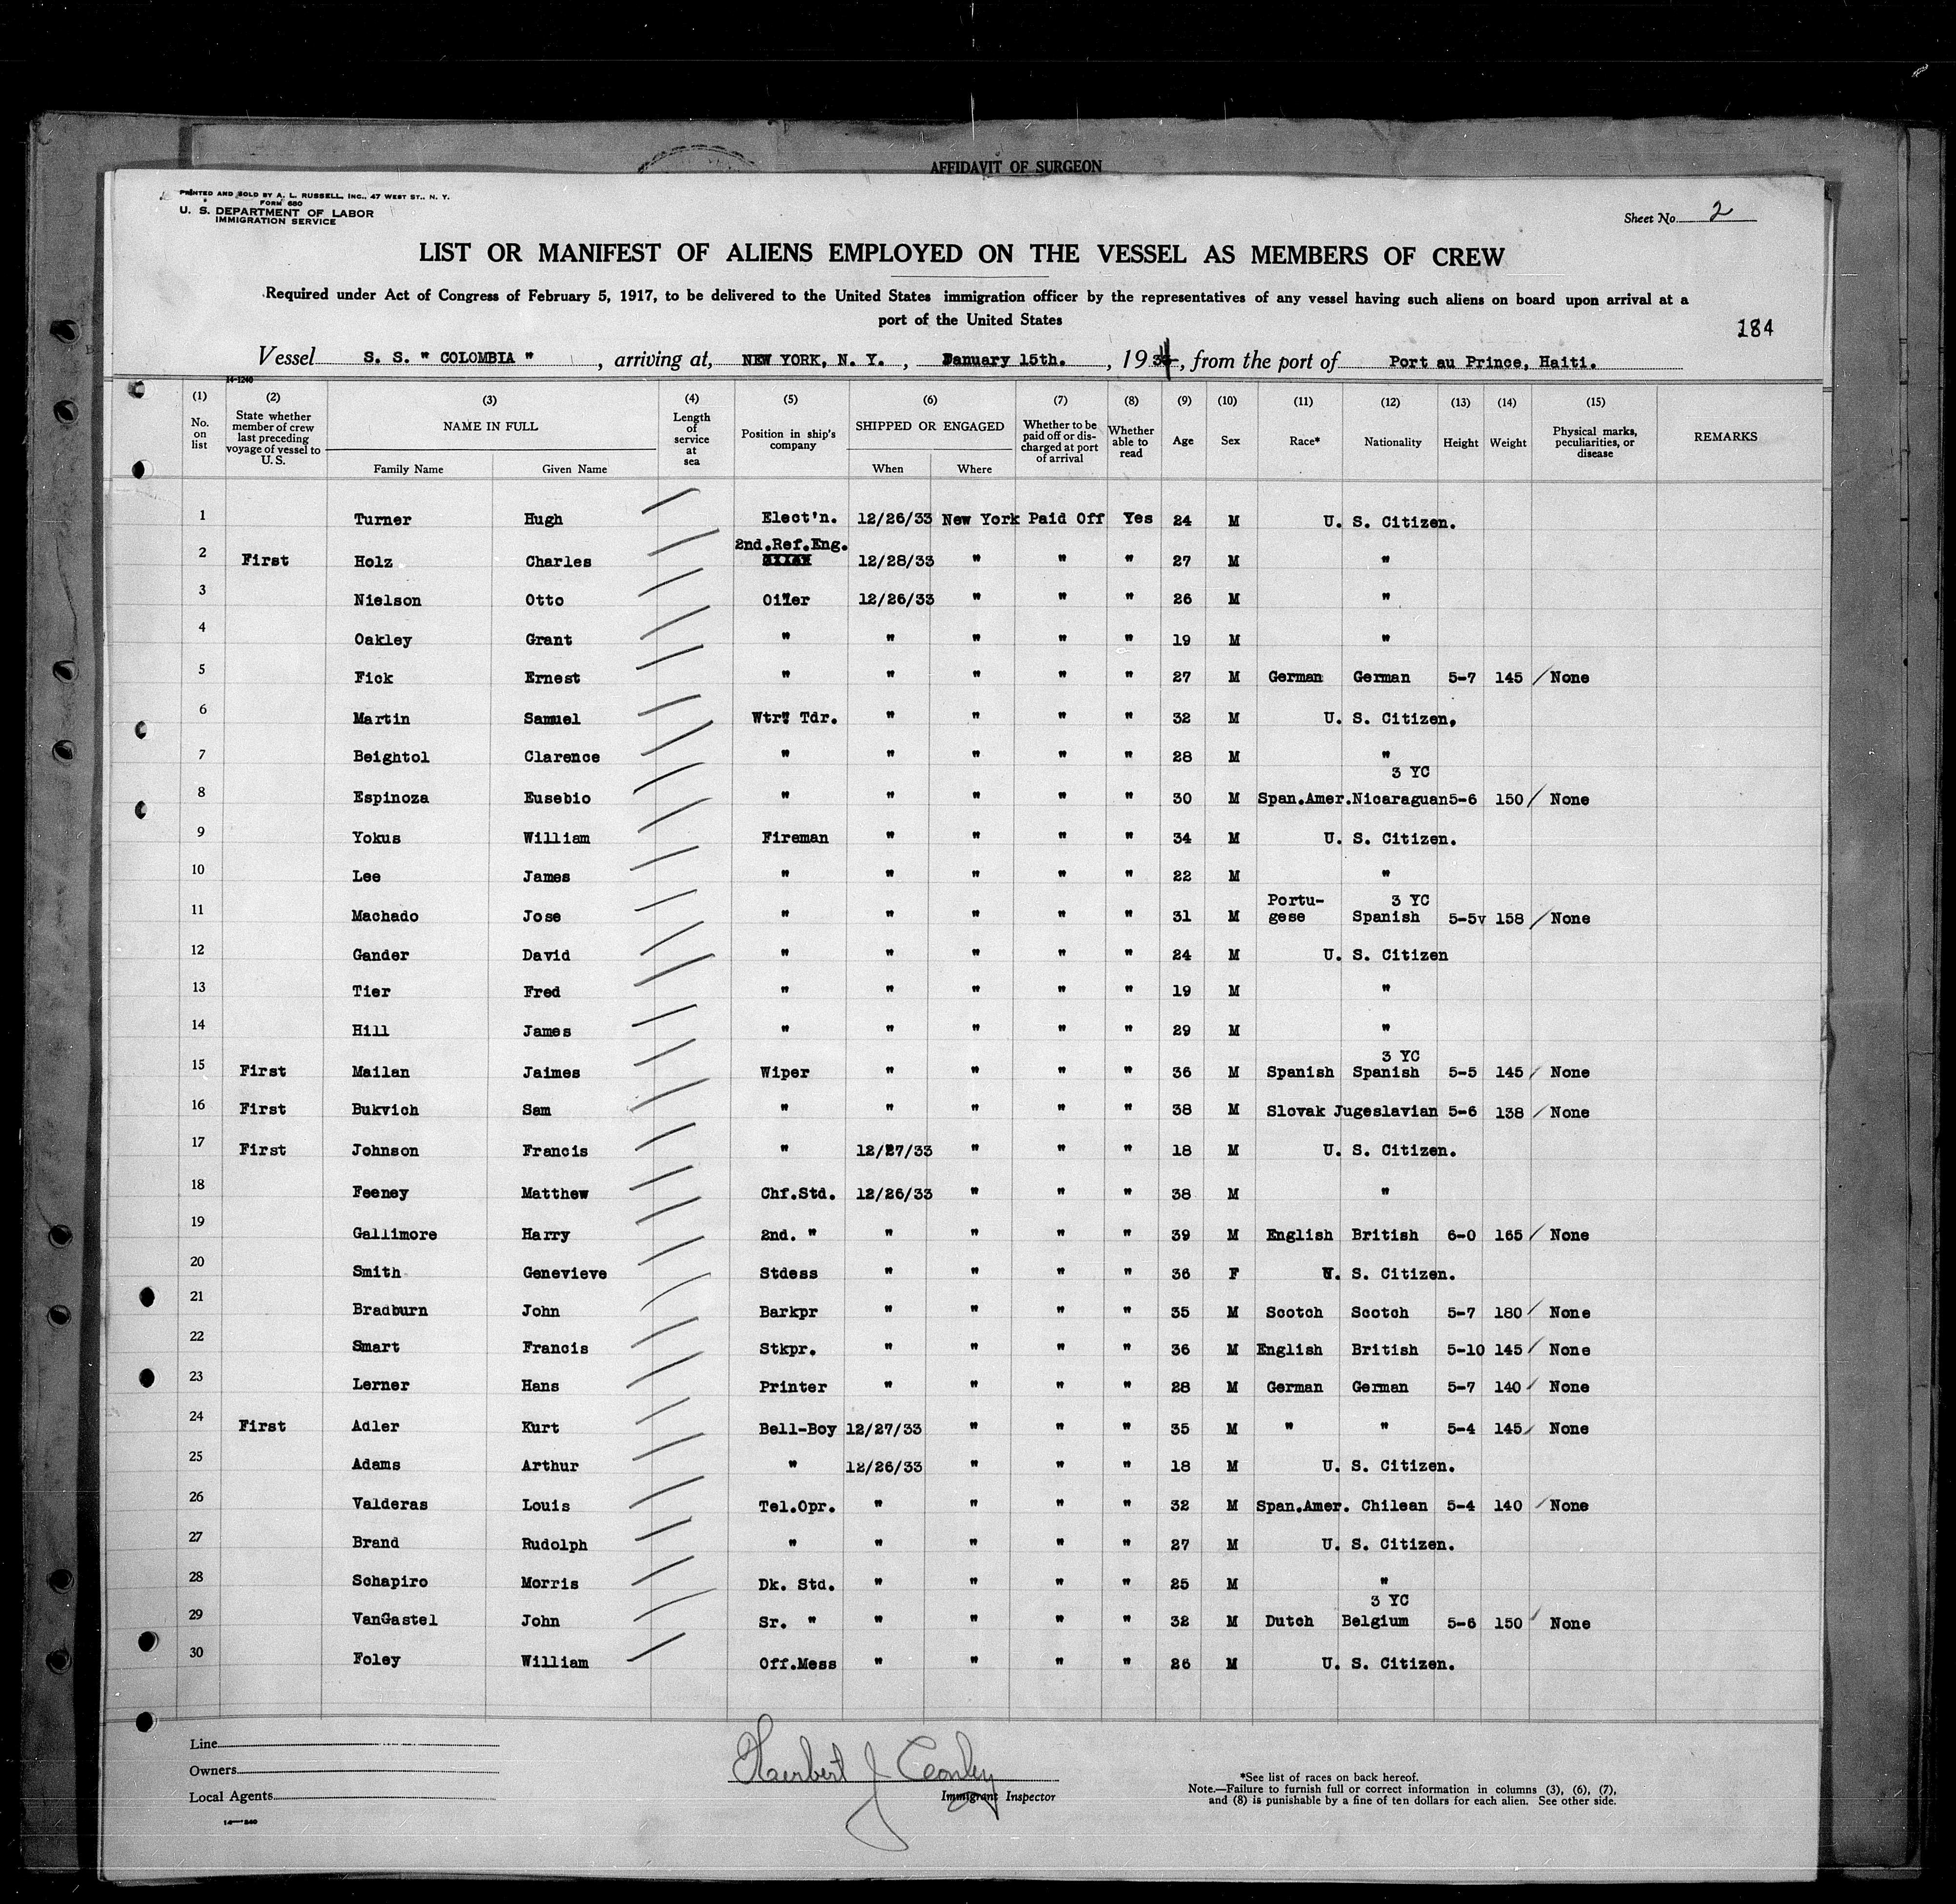 AFFIDAVIT OF SURGEON
PRINTED AND SOLD BY A. L. RUSSELL, INC., 47 WEST ST., N. Y.
FORM 680
U. S. DEPARTMENT OF LABOR
IMMIGRATION SERVICE
Sheet No. 2
LIST OR MANIFEST OF ALIENS EMPLOYED ON THE VESSEL AS MEMBERS OF CREW
Required under Act of Congress of February 5, 1917, to be delivered to the United States immigration officer by the representatives of any vessel having such aliens on board upon arrival at a
port of the United States
184
Vessel S. S. " COLOMBIA " , arriving at, NEW YORK, N. Y. , January 15th. , 1934, from the port of Port au Prince, Haiti.
14-1240
(1) No. on list
(2) State whether member of crew last preceding voyage of vessel to U. S.
(3) NAME IN FULL Family Name Given Name
(4) Length of service at sea
(5) Position in ship's company
(6) SHIPPED OR ENGAGED When Where
(7) Whether to be paid off or discharged at port of arrival
(8) Whether able to read
(9) Age
(10) Sex
(11) Race*
(12) Nationality
(13) Height
(14) Weight
(15) Physical marks, peculiarities, or disease
REMARKS
1 Turner Hugh Elect'n. 12/26/33 New York Paid Off Yes 24 M U. S. Citizen.
2nd.Ref.Eng.
2 First Holz Charles 12/28/33 " " " 27 M "
3 Nielson Otto Oiler 12/26/33 " " " 26 M "
4 Oakley Grant " " " " " 19 M "
5 Fick Ernest " " " " " 27 M German German 5-7 145 None
6 Martin Samuel Wtr. Tdr. " " " " 32 M U. S. Citizen.
7 Beightol Clarence " " " " " 28 M "
3 YC
8 Espinoza Eusebio " " " " " 30 M Span.Amer. Nicaraguan 5-6 150 None
9 Yokus William Fireman " " " " 34 M U. S. Citizen.
10 Lee James " " " " " 22 M "
Portu- 3 YC
11 Machado Jose " " " " " 31 M gese Spanish 5-5 158 None
12 Gander David " " " " " 24 M U. S. Citizen
13 Tier Fred " " " " " 19 M "
14 Hill James " " " " " 29 M "
3 YC
15 First Mailan Jaimes Wiper " " " " 36 M Spanish Spanish 5-5 145 None
16 First Bukvich Sam " " " " " 38 M Slovak Jugeslavian 5-6 138 None
17 First Johnson Francis " 12/27/33 " " " 18 M U. S. Citizen.
18 Feeney Matthew Chf.Std. 12/26/33 " " " 38 M "
19 Gallimore Harry 2nd. " " " " " 39 M English British 6-0 165 None
20 Smith Genevieve Stdess " " " " 36 F U. S. Citizen.
21 Bradburn John Barkpr " " " " 35 M Scotch Scotch 5-7 180 None
22 Smart Francis Stkpr. " " " " 36 M English British 5-10 145 None
23 Lerner Hans Printer " " " " 28 M German German 5-7 140 None
24 First Adler Kurt Bell-Boy 12/27/33 " " " 35 M " " 5-4 145 None
25 Adams Arthur " 12/26/33 " " " 18 M U. S. Citizen.
26 Valderas Louis Tel.Opr. " " " " 32 M Span.Amer. Chilean 5-4 140 None
27 Brand Rudolph " " " " " 27 M U. S. Citizen.
28 Schapiro Morris Dk. Std. " " " " 25 M "
3 YC
29 VanGastel John Sr. " " " " " 32 M Dutch Belgium 5-6 150 None
30 Foley William Off.Mess " " " " 26 M U. S. Citizen.
Line
Owners
Local Agents
Herbert J
Immigrant Inspector
*See list of races on back hereof.
Note.—Failure to furnish full or correct information in columns (3), (6), (7),
and (8) is punishable by a fine of ten dollars for each alien. See other side.